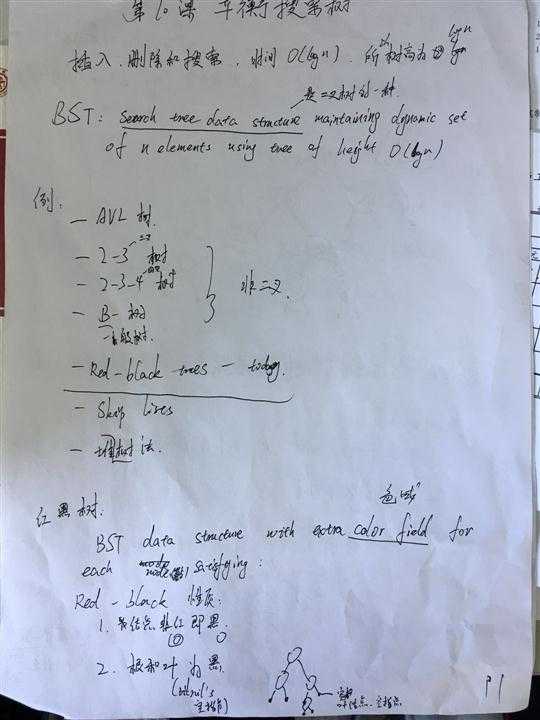 第10课 平衡搜索树
插入、删除和搜索，时间 O(lgn)，所以树高为 lgn
是二叉树的一种
BST: Search tree data structure maintaining dynamic set
of n elements using tree of height O(lgn)
例：
— AVL 树
— 2-3 树
— 2-3-4 树
— B- 树
非二叉
— Red-black trees — today
— Skip lists
— 树 法
红黑树：
色域
BST data structure with extra color field for
each node satisfying:
Red-black 性质：
1. 各结点非红即黑
2. 根和叶为黑
(nil's
P1